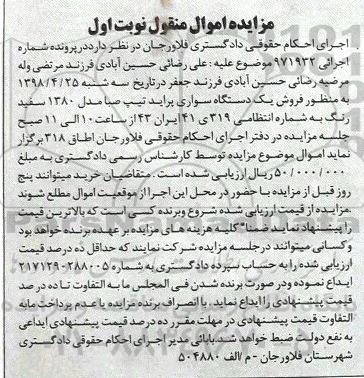 مزایده اموال منقول نوبت اول
اجرای احکام حقوقی دادگستری فلاورجان در نظر دارددرپرونده شماره
اجرائی ۹۷۱۹۳۲ موضوع علیه : علی رضائی حسین آبادی فرزند مرتضی وله
مرضیه رضائی حسین آبادی فرزند جعفر درتاریخ سه شنبه ۱۳۹۸/۴/۲۵
به منظور فروش یک دستگاه سواری پراید تیپ صبا مدل ۱۳۸۰ سفید
رنگ به شماره انتظامی ۳۱۹ی۴۱ ایران ۴۳ از ساعت ۱۰ الی ۱۱ صبح
جلسه مزایده در دفتر اجرای احکام حقوقی فلاورجان اطاق ۳۱۸ برگزار
نماید اموال موضوع مزایده توسط کارشناس رسمی دادگستری به مبلغ
۵۰/۰۰۰/۰۰۰ ریال ارزیابی شده است . متقاضیان خرید میتوانند پنج
روز قبل از مزایده با حضور در محل این اجرا از موقعیت اموال مطلع شوند
.مزایده از قیمت ارزیابی شده شروع وبرنده کسی است که بالاترین قیمت
را پیشنهاد نماید ضمنا" کلیه هزینه های مزایده بر عهده برنده خواهد بود
وکسانی میتوانند درجلسه مزایده شرکت نمایند که حداقل ده در صد قیمت
ارزیابی شده را به حساب سپرده دادگستری به شماره ۲۱۷۱۲۹۰۲۸۸۰۰۵
ایداع نموده ودر صورت برنده شدن فی المجلس ما به التفاوت تا ده در صد
قیمت پیشنهادی را ایداع نماید . با انصراف برنده مزایده یا عدم پرداخت مابه
التفاوت قیمت پیشنهادی در مهلت مقرر ده درصد قیمت پیشنهادی ایداعی
به نفع دولت ضبط خواهد شد.بابائی مدیر اجرای احکام حقوقی دادگستری
شهرستان فلاورجان - م /الف ۵۰۴۸۸۰